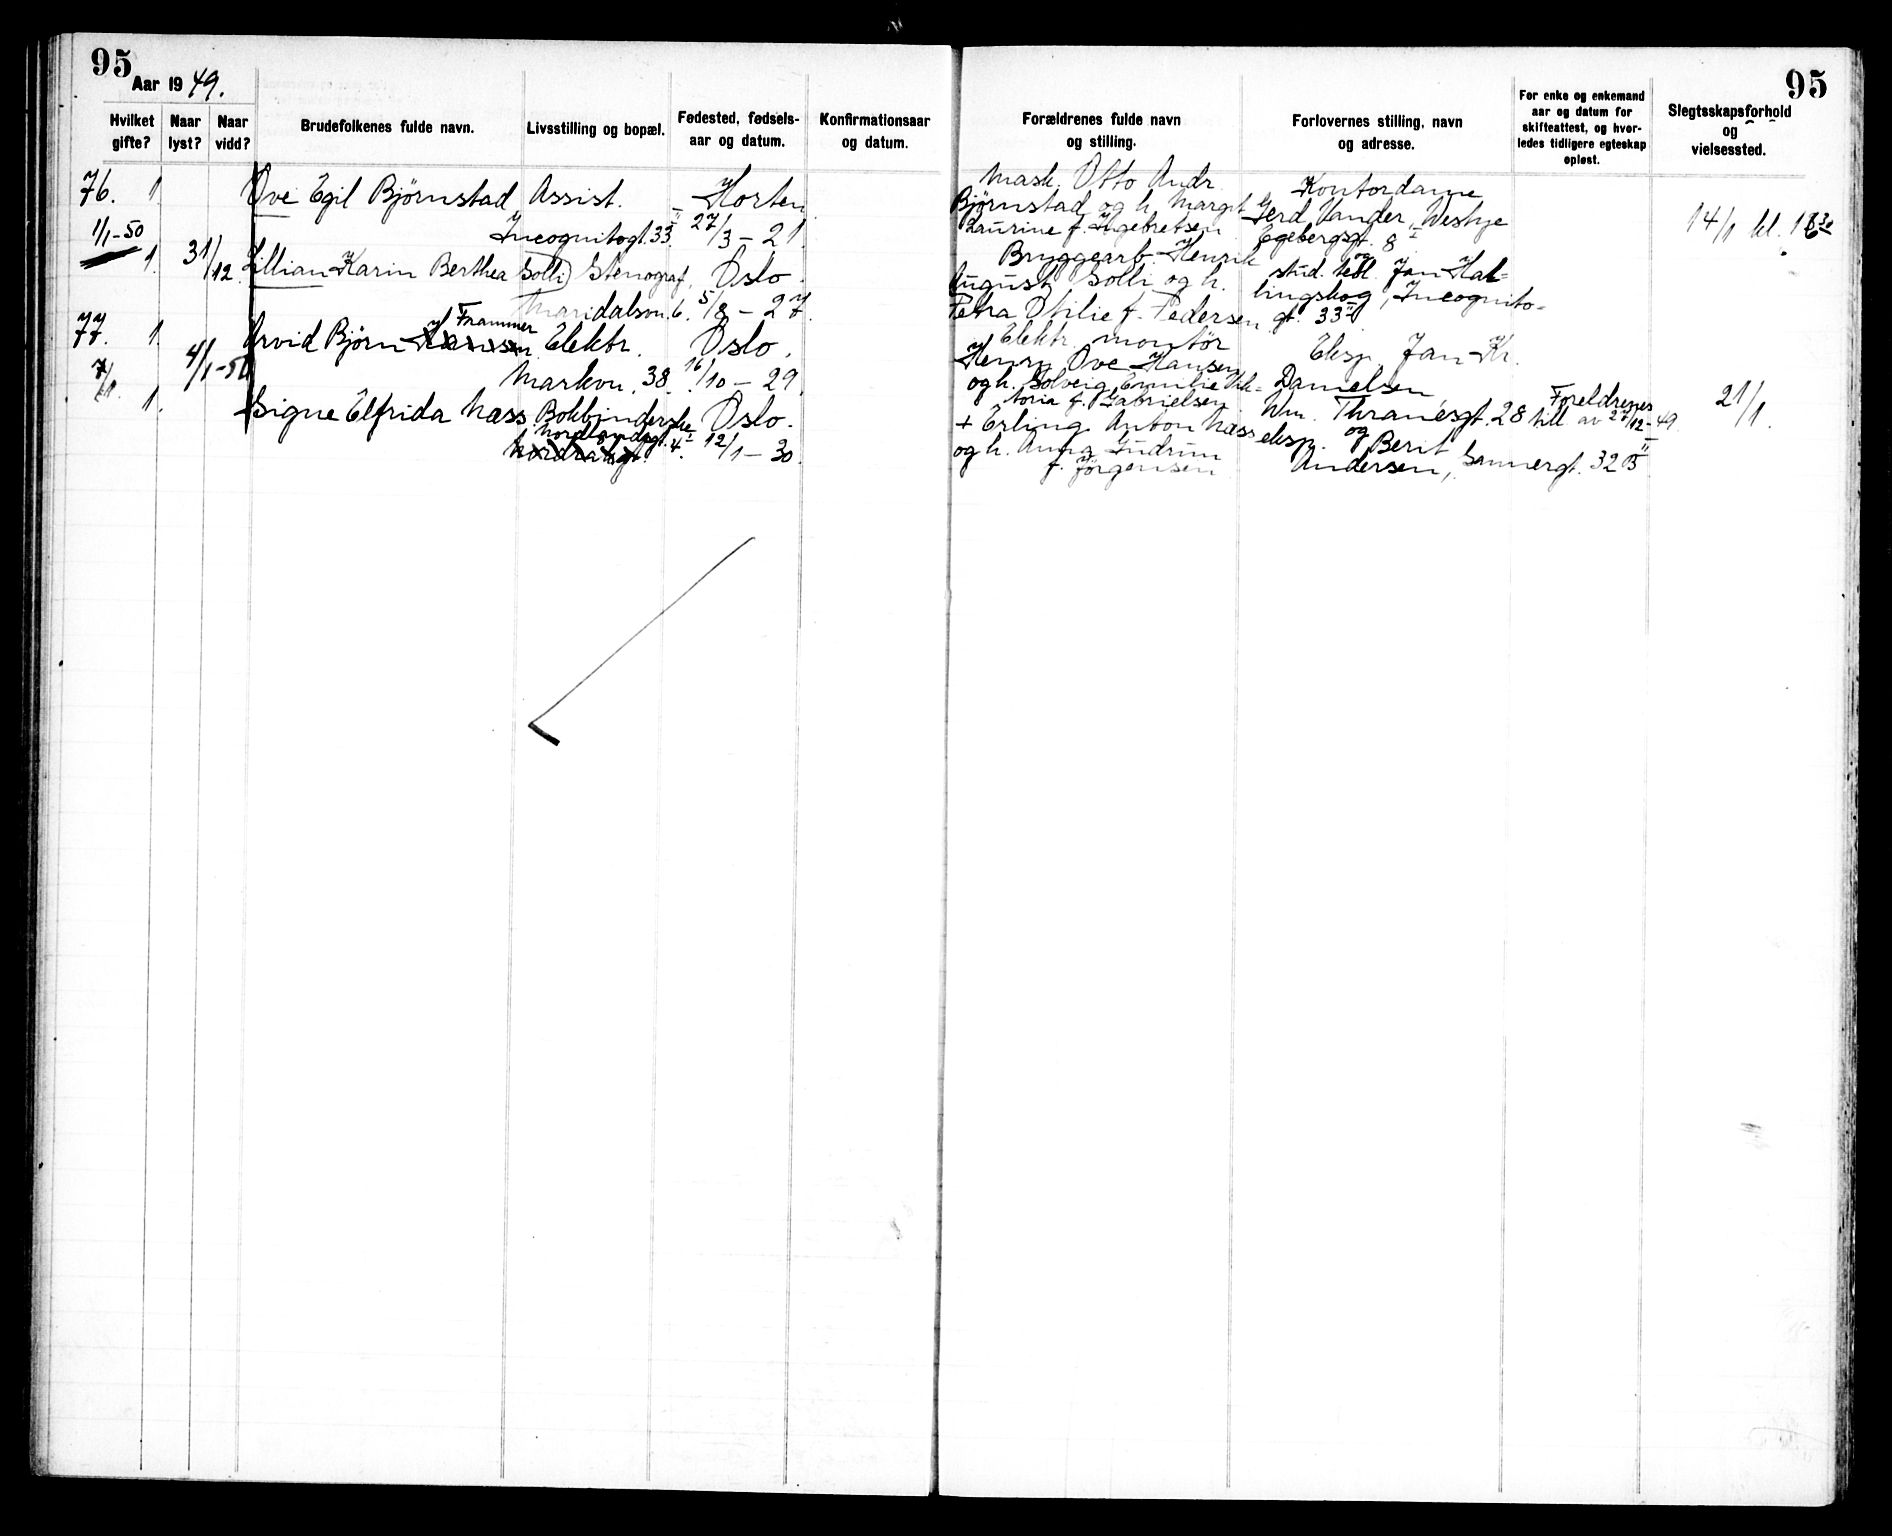 95
Aar 19 49.
Hvilket gifte?
Naar lyst?
Naar vidd?
Brudefolkenes fulde navn.
Livsstilling og bopæl.
Fødested, fødsels-
aar og datum.
Konfirmationsaar
og datum.
76. 1. Ove Egil Bjørnstad Assist. Horten
1/1-50 Incognitogt. 33 II 27/3 - 21.
1. 31/12 Lillian Karin Berthea Solli Stenograf, Oslo.
Maridalsvn. 6. 5/8 - 27.
Frammer
77. 1. Arvid Björn Hansen Elektr. Oslo.
7/1. 4/1-50 Markvn. 38. 16/10 - 29.
1. Signe Elfrida Næss Bokbinderske Oslo.
Nordlandsgt. 4. I 12/1 - 30.
95
Forældrenes fulde navn
og stilling.
Forlovernes stilling, navn
og adresse.
For enke og enkemand
aar og datum for
skifteattest, og hvor-
ledes tidligere egteskap
opløst.
Slegtsskapsforhold
og
vielsessted.
Mask. Otto Andr. Kontordame
Bjørnstad og h. Margit Gerd Vander, Westye
Laurine f. Ingebretsen Egebergsgt. 8 I 14/1 kl.
Bryggearb. Henrik og
August Solli og h. stud. Jan Hal-
Petra Otilie f. Pedersen lingskog, Incognito-
gt. 33 II
Elektr. montör Eksp. Jan Kr.
Henry Ove Hansen Danielsen
og h. Solveig Emilie Vik-
toria f. Gabrielsen Wm. Thranesgt. 28 Foreldrenes
+ Erling Anton Næss og till av 27/12-49. 21/1.
og h. Anna Gudrun eksp. Berit
f. Jörgensen Andersen, Sannergt. 32 B II